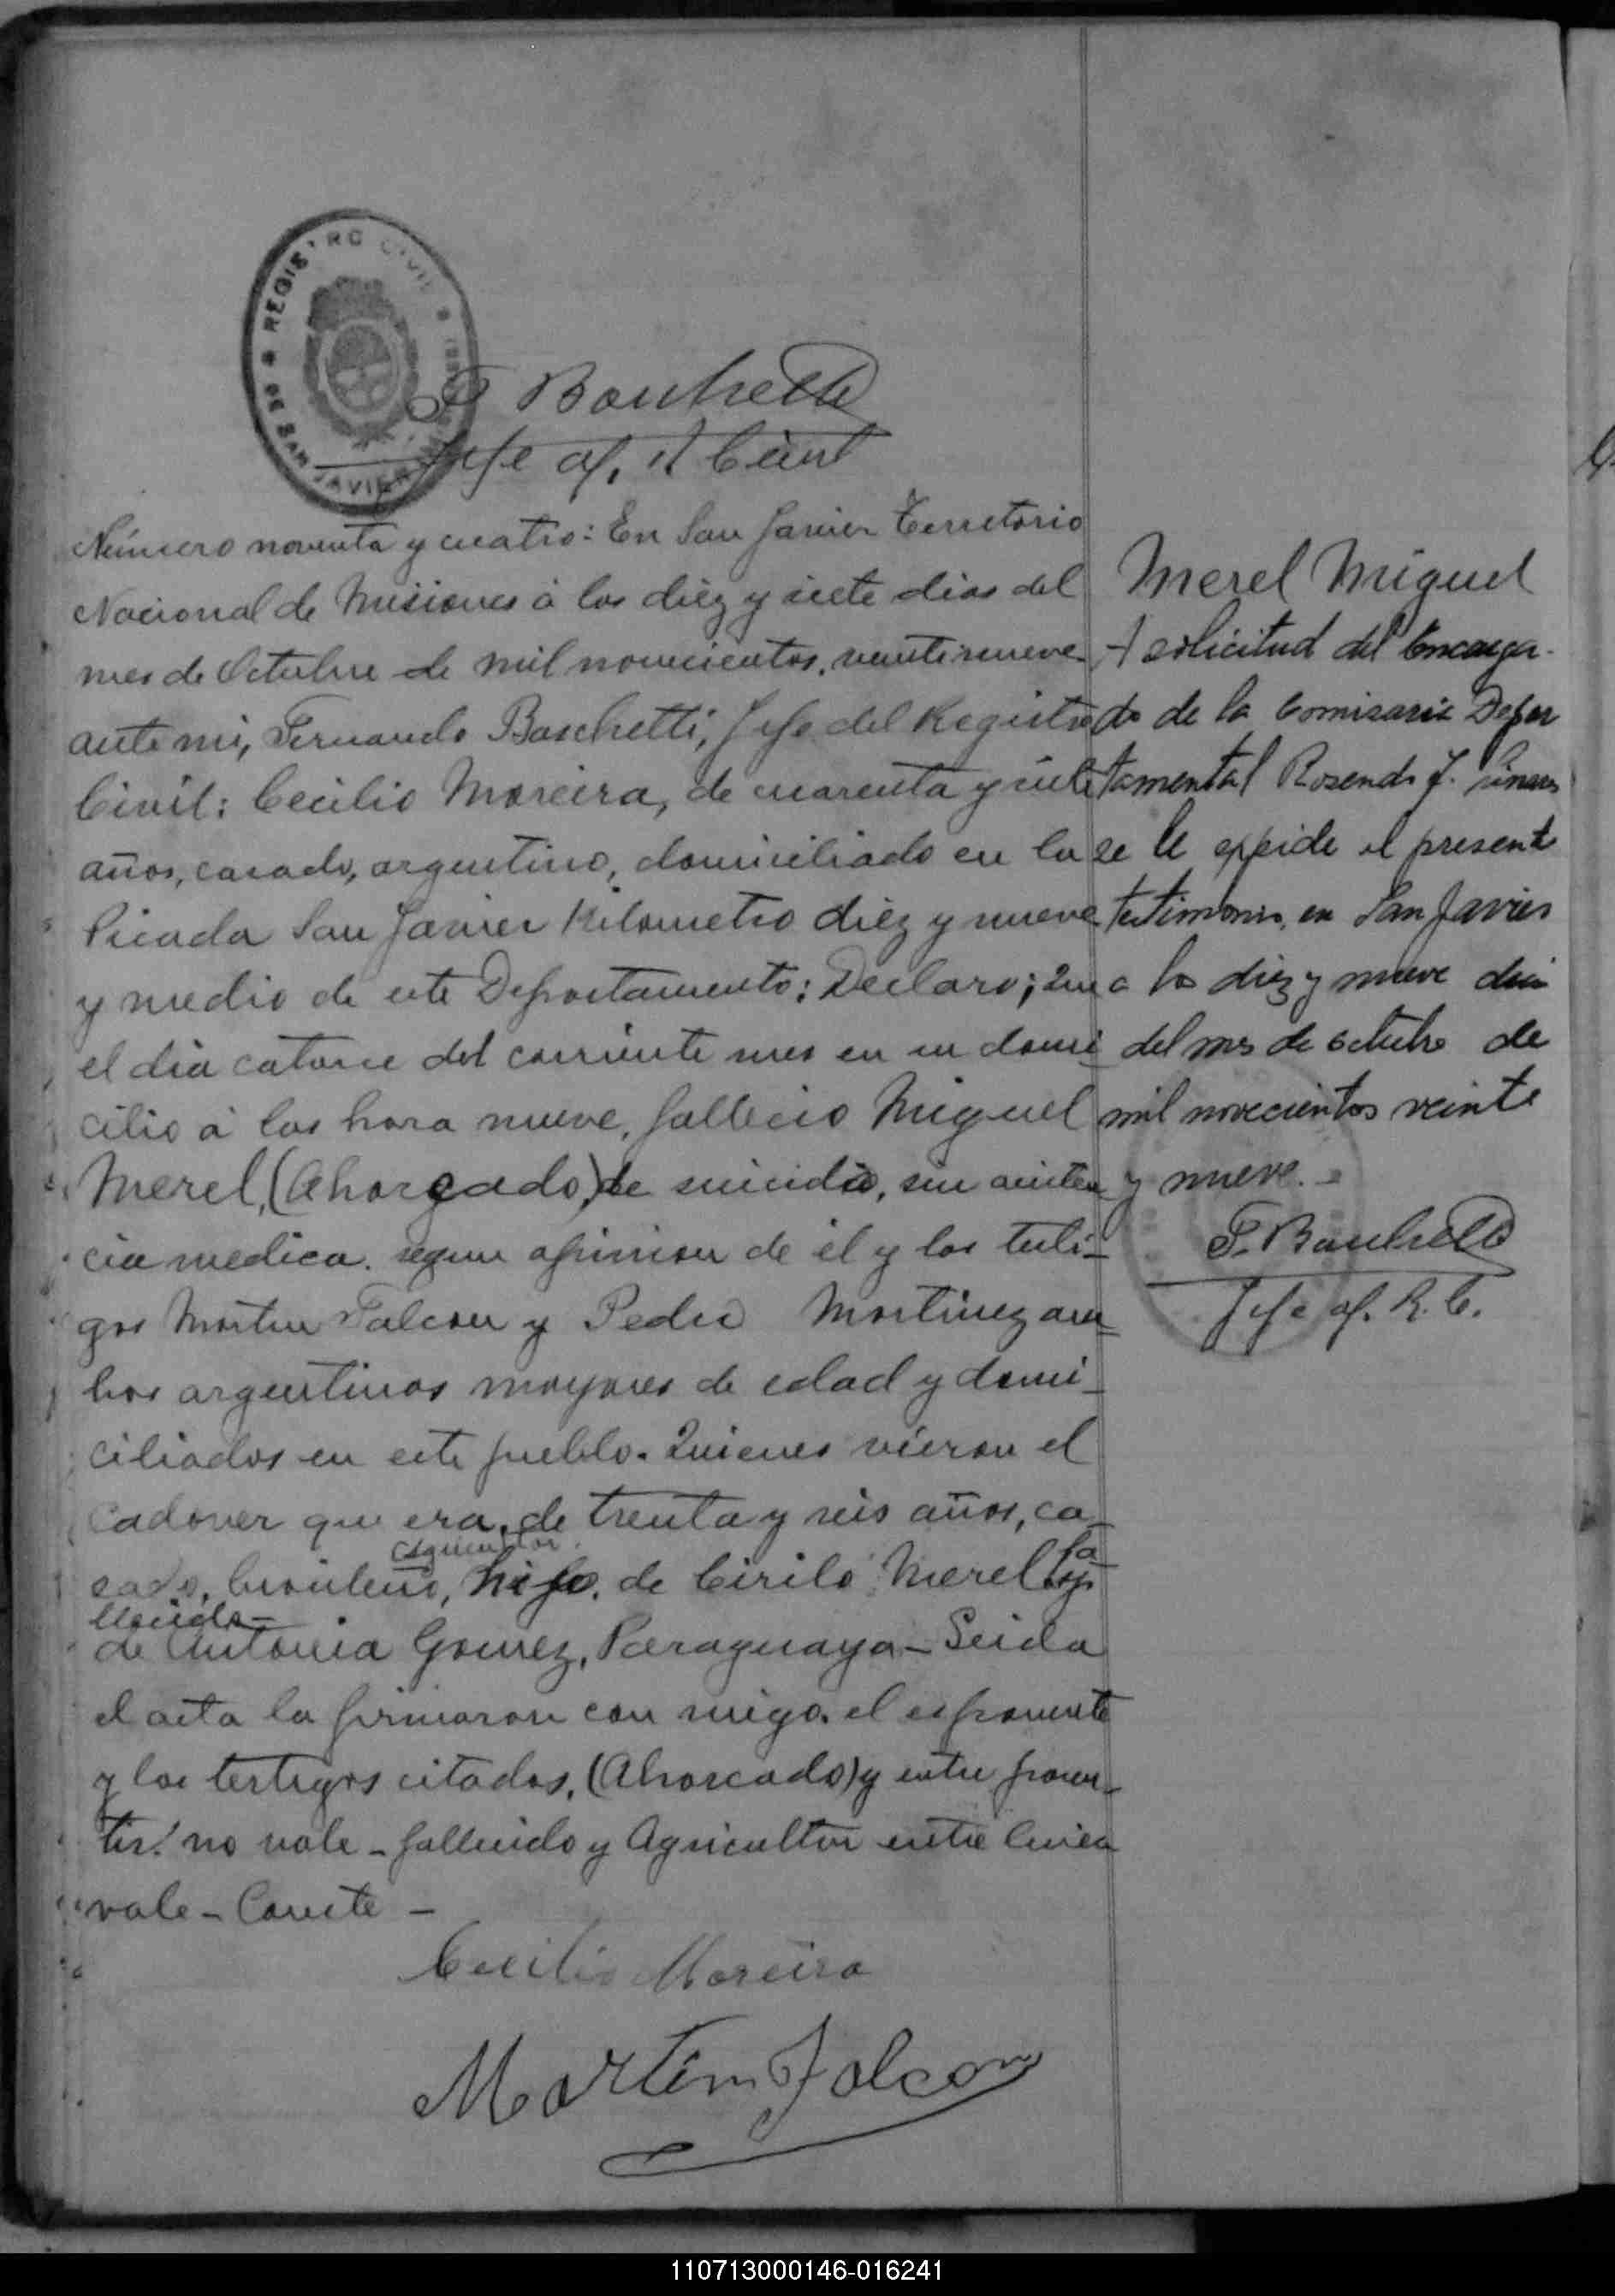 REGISTRO CIVIL
DE SAN JAVIER
F. Boschetti
Jefe of. R. Civil
Número noventa y cuatro: En San Javier Territorio
Nacional de Misiones á los diéz y siete dias del
mes de Octubre de mil novecientos, veintinueve
ante mi, Fernando Boschetti, Jefe del Registro
Civil: Cecilio Moreira, de cuarenta y siete
años, casado, argentino, domiciliado en la
Picada San Javier Kilometro diéz y nueve
y medio de este Departamento: Declaro; Que
el dia catorce del corriente mes en su domi
cilio á las hora nueve, fallecio Miguel
Merel, (Ahorcado) de suicidio, sin asisten
cia medica. segun opinion de él y los testi-
gos Martin Falcon y Pedro Martinez am
bos argentinos mayores de edad y domi-
ciliados en este pueblo. Quienes vieron el
cadaver que era, de trenta y seis años, ca-
agricultor
sado, brasileño, hijo. de Cirilo Merel fa
llecido - y
de Antonia Gomez, Paraguaya - Leida
el acta la firmaron con migo. el esponente
y los testigos citados, (Ahorcado) y entre paren-
tis: no vale - fallecido y Agricultor entre linea
vale - Conste -
Cecilio Moreira
Martin Falcon
Merel Miguel
A solicitud del Encarga-
do de la Comisaria Depar
tamental Rosendo J.
se le expide el presente
testimonio, en San Javier
a los diez y nueve dias
del mes de octubre de
mil novecientos veinte
y nueve. -
F. Boschetti
Jefe of. R. C.
110713000146-016241